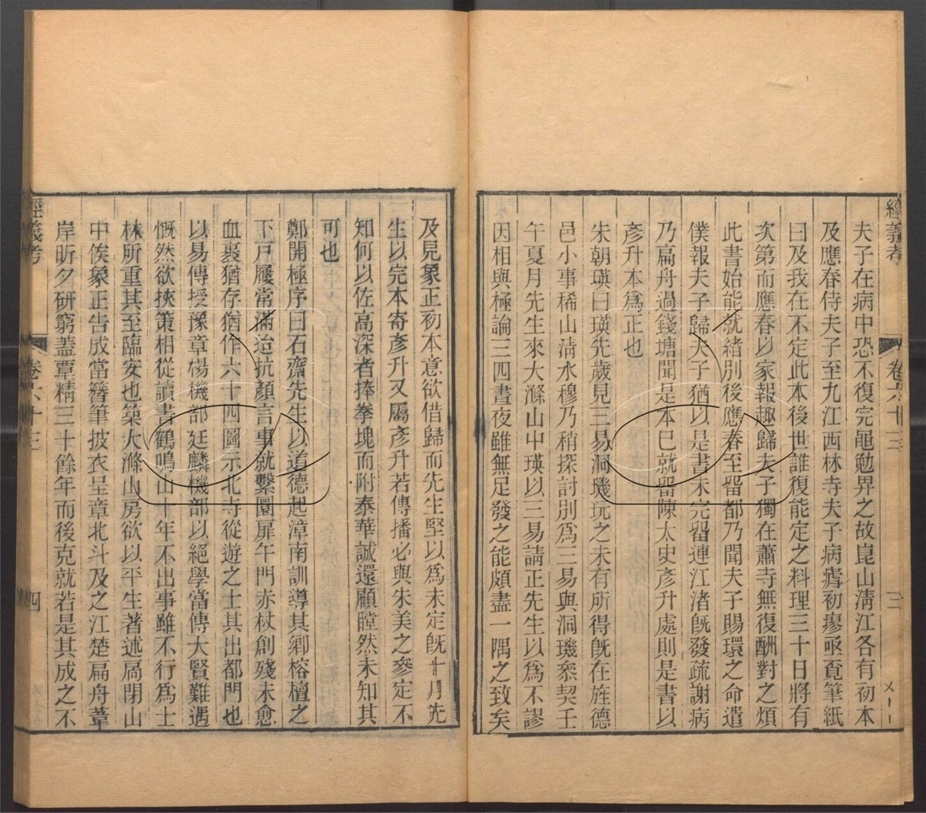 經義考
卷六十三
三
夫子在病中恐不復完黽勉畀之故崑山淸江各有初本
及應春侍夫子至九江西林寺夫子病瘧初瘳亟覔筆紙
曰及我在不定此本後世誰復能定之料理三十日將有
次第而應春以家報趣歸夫子獨在蕭寺無復酬對之煩
此書始能就緒別後應春至留都乃聞夫子賜環之命遣
僕報夫子歸夫子猶以是書未完留連江渚旣發疏謝病
乃扁舟過錢塘聞是本已就留陳太史彥升處則是書以
彥升本爲正也
朱朝瑛曰瑛先歲見三易洞璣玩之未有所得旣在旌德
邑小事稀山淸水穆乃稍探討別爲三易與洞璣叅契壬
午夏月先生來大滌山中瑛以三易請正先生以爲不謬
因相與極論三四晝夜雖無足發之能頗盡一隅之致矣
及見象正初本意欲借歸而先生堅以爲未定旣十月先
生以完本寄彥升又屬彥升若傳播必與朱美之參定不
知何以佐高深者捧拳塊而附泰華誠還顧瞠然未知其
可也
鄭開極序曰石齋先生以道德起漳南訓導其鄕榕檀之
下戸屨常滿迨抗顏言事就繫圜扉午門赤杖創殘未愈
血裹猶存猶作六十四圖示北寺從遊之士其出都門也
以易傳授豫章楊機部廷麟機部以絕學當傳大賢難遇
慨然欲挾策相從讀書鶴鳴山十年不出事雖不行爲士
林所重其至臨安也築大滌山房欲以平生著述扃閉山
中俟象正告成當簪筆披衣呈章北斗及之江楚扁舟葦
岸昕夕硏窮蓋覃精三十餘年而後克就若是其成之不
經義考
卷六十三
四